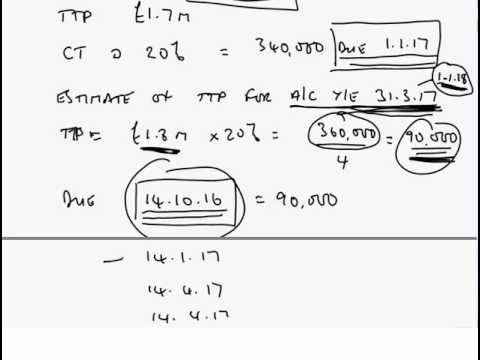 TTP £1.7M
CT @ 20% = 340,000 DUE 1.1.17
1.1.18
ESTIMATE OF TTP FOR A/C Y/E 31.3.17
TTP = £1.8M × 20% = 360,000/4 = 90,000
DUE 14.10.16 = 90,000
— 14.1.17
14.4.17
14.4.17